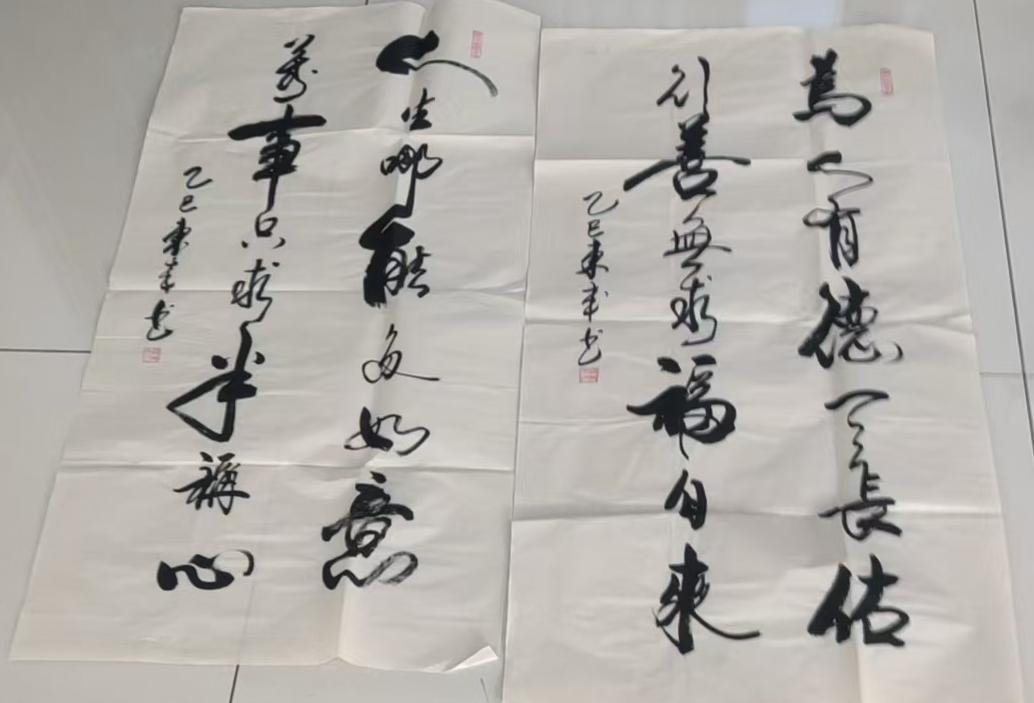 為人有德天長佑
行善無求福自來
乙巳 书
人生哪能多如意
萬事只求半稱心
乙巳 书